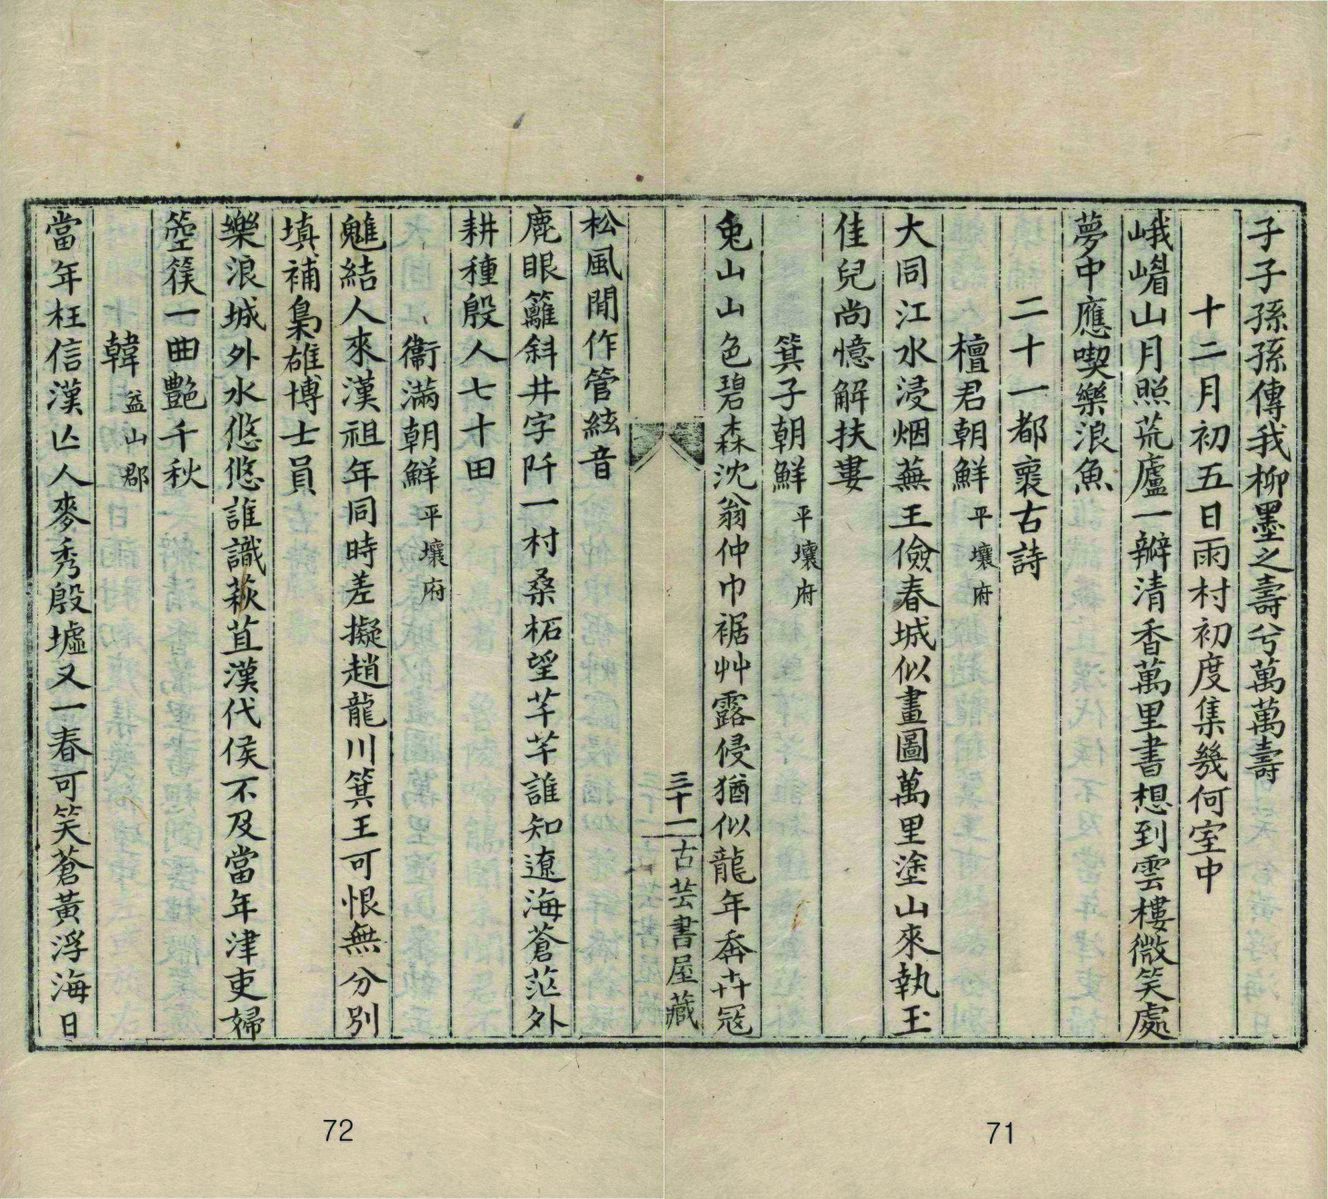 子子孫孫傳我柳墨之壽兮萬萬壽
十二月初五日雨村初度集幾何室中
峨嵋山月照荒廬一瓣清香萬里書想到雲樓微笑處
夢中應喫樂浪魚
二十一都褱古詩
檀君朝鮮平壤府
大同江水浸烟蕪王儉春城似畫圖萬里塗山來執玉
佳兒尚憶解扶婁
箕子朝鮮平壤府
兔山山色碧森沈翁仲巾裾艸露侵猶似龍年奔卉冦
三十一 古芸書屋藏
松風閒作管絃音
鹿眼籬斜井字阡一村桑柘望芊芊誰知遼海蒼茫外
耕種殷人七十田
衞滿朝鮮平壤府
魋結人來漢祖年同時差擬趙龍川箕王可恨無分別
填補梟雄博士員
樂浪城外水悠悠誰識萩苴漢代侯不及當年津吏婦
箜篌一曲艷千秋
韓益山郡
當年枉信漢亾人麥秀殷墟又一春可笑蒼黃浮海日
71
72